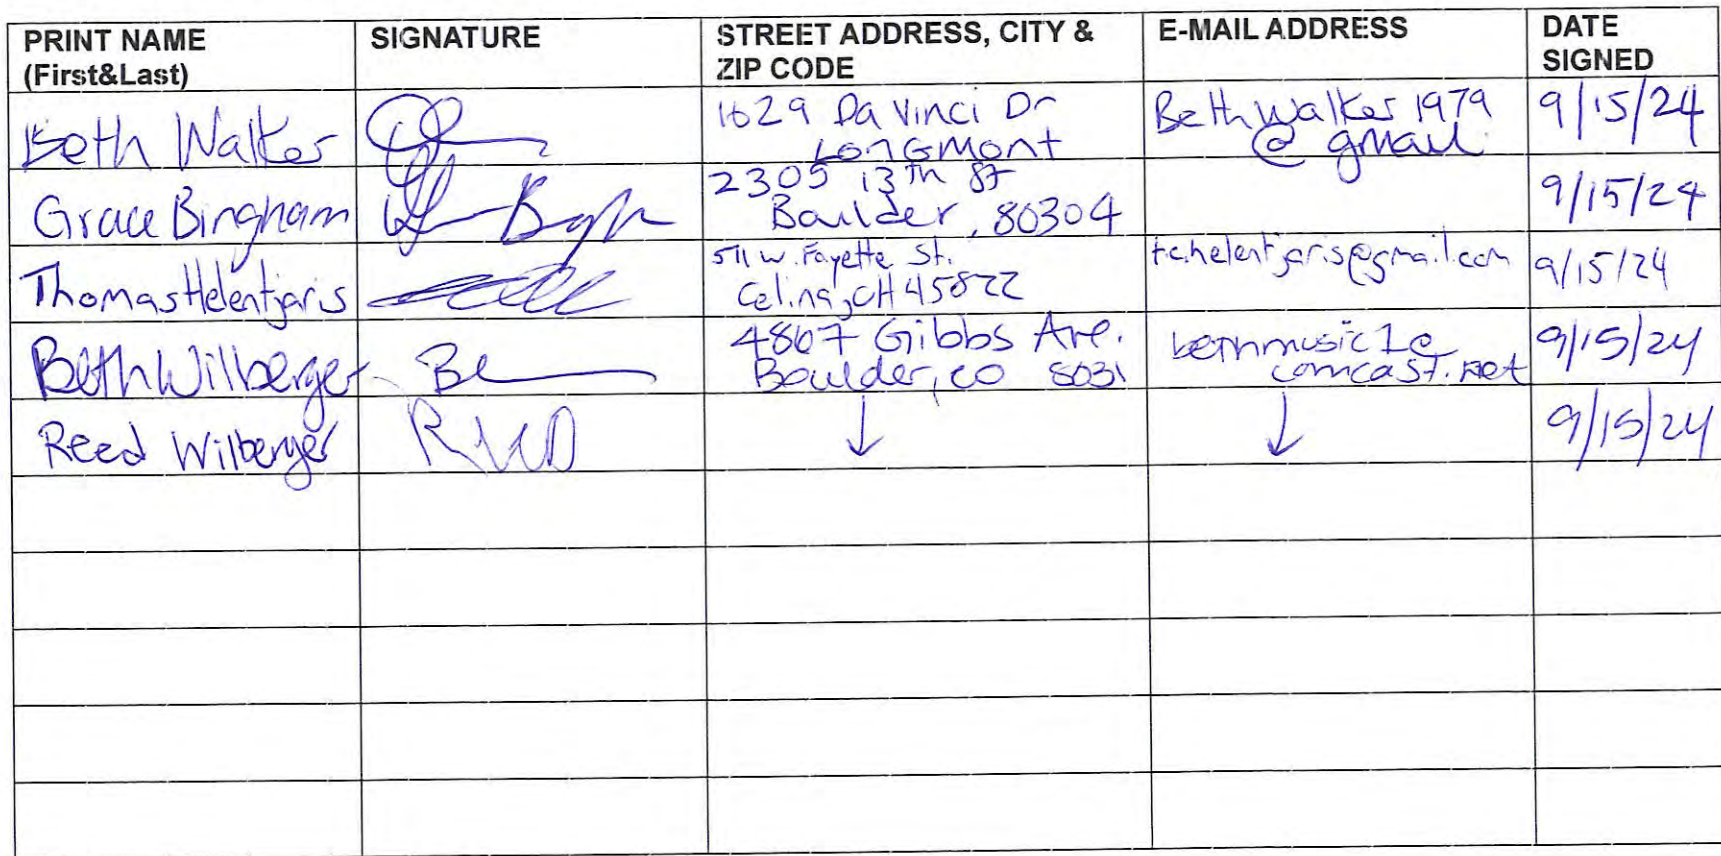 PRINT NAME (First&Last) SIGNATURE STREET ADDRESS, CITY & ZIP CODE E-MAIL ADDRESS DATE SIGNED
Beth Walker 1629 Da Vinci Dr Longmont Bethwalker1979 @ gmail 9/15/24
Grace Bingham 2305 13th St Boulder, 80304 9/15/24
Thomas Helentjaris 511 W. Fayette St. Celina, OH 45822 t.c.helentjaris@gmail.com 9/15/24
Beth Wilberger Be 4867 Gibbs Ave. Boulder, CO 8031 bethmusic1@ comcast.net 9/15/24
Reed Wilberger ↓ ↓ 9/15/24